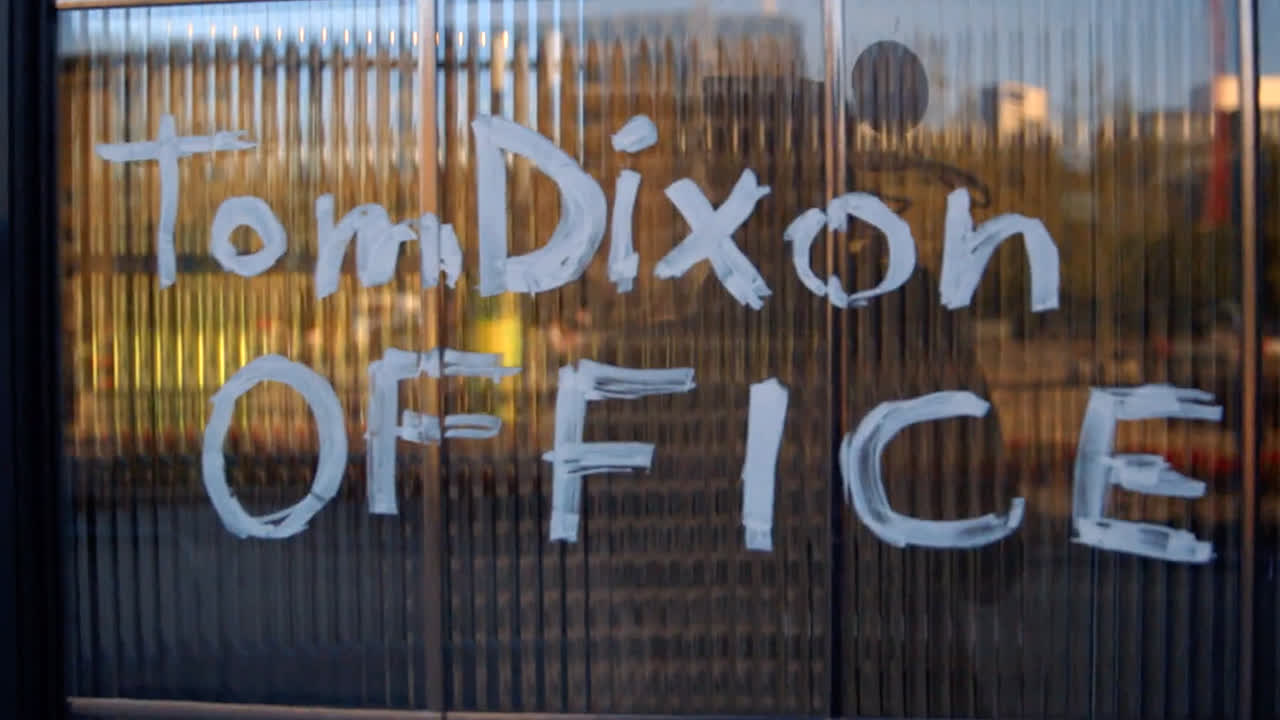 Tom Dixon
OFFICE